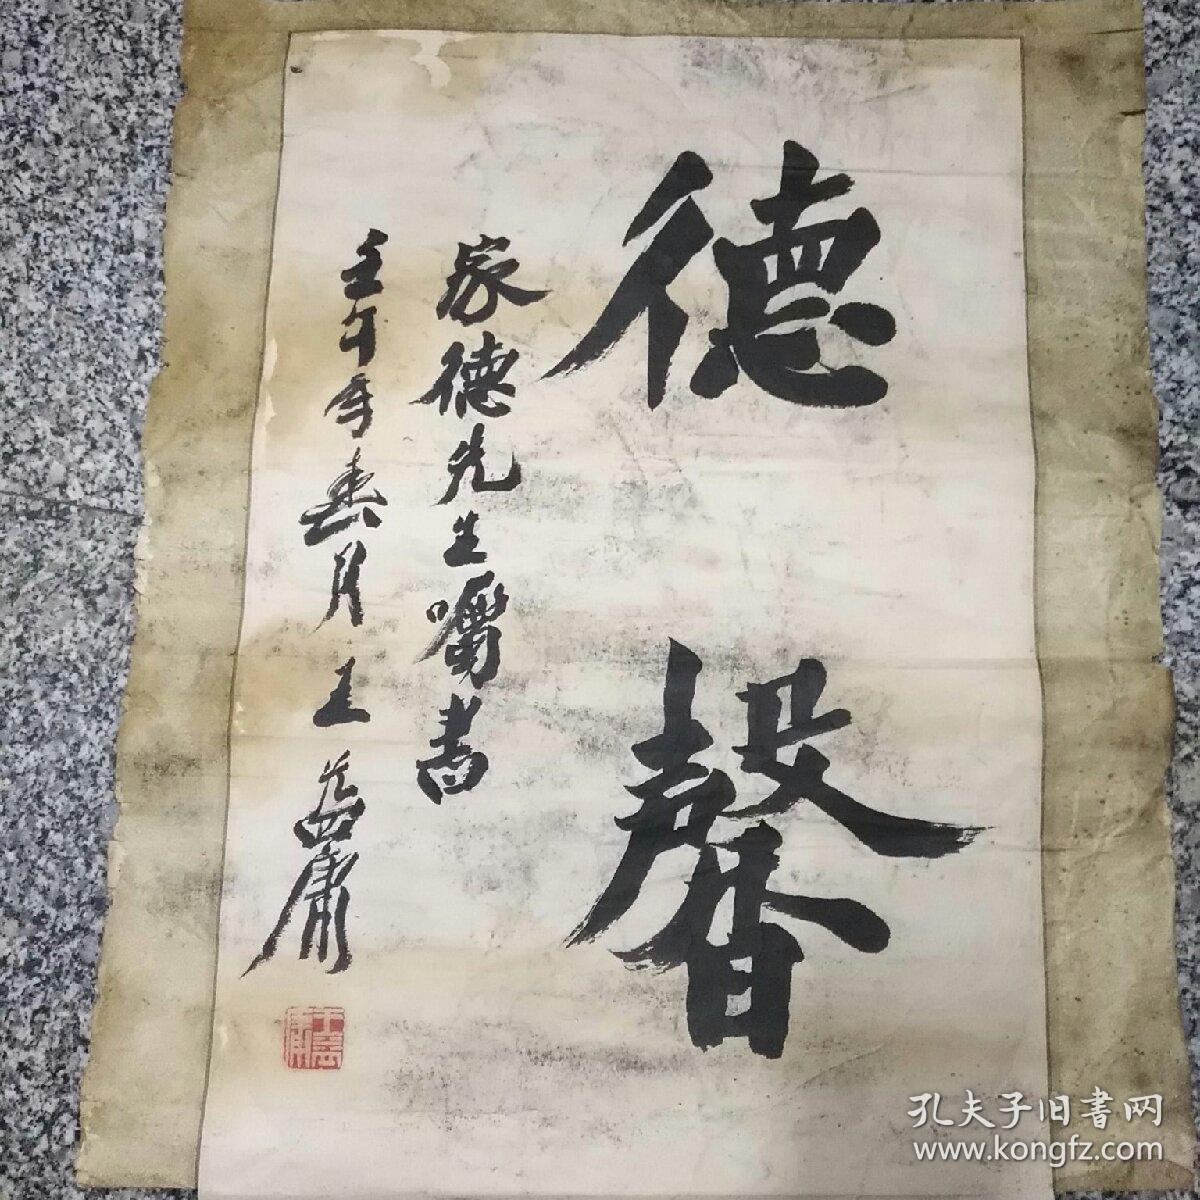 德馨
家德先生嘱書
壬午年春月王萬庸
王萬
庸印
孔夫子旧書网
www.kongfz.com